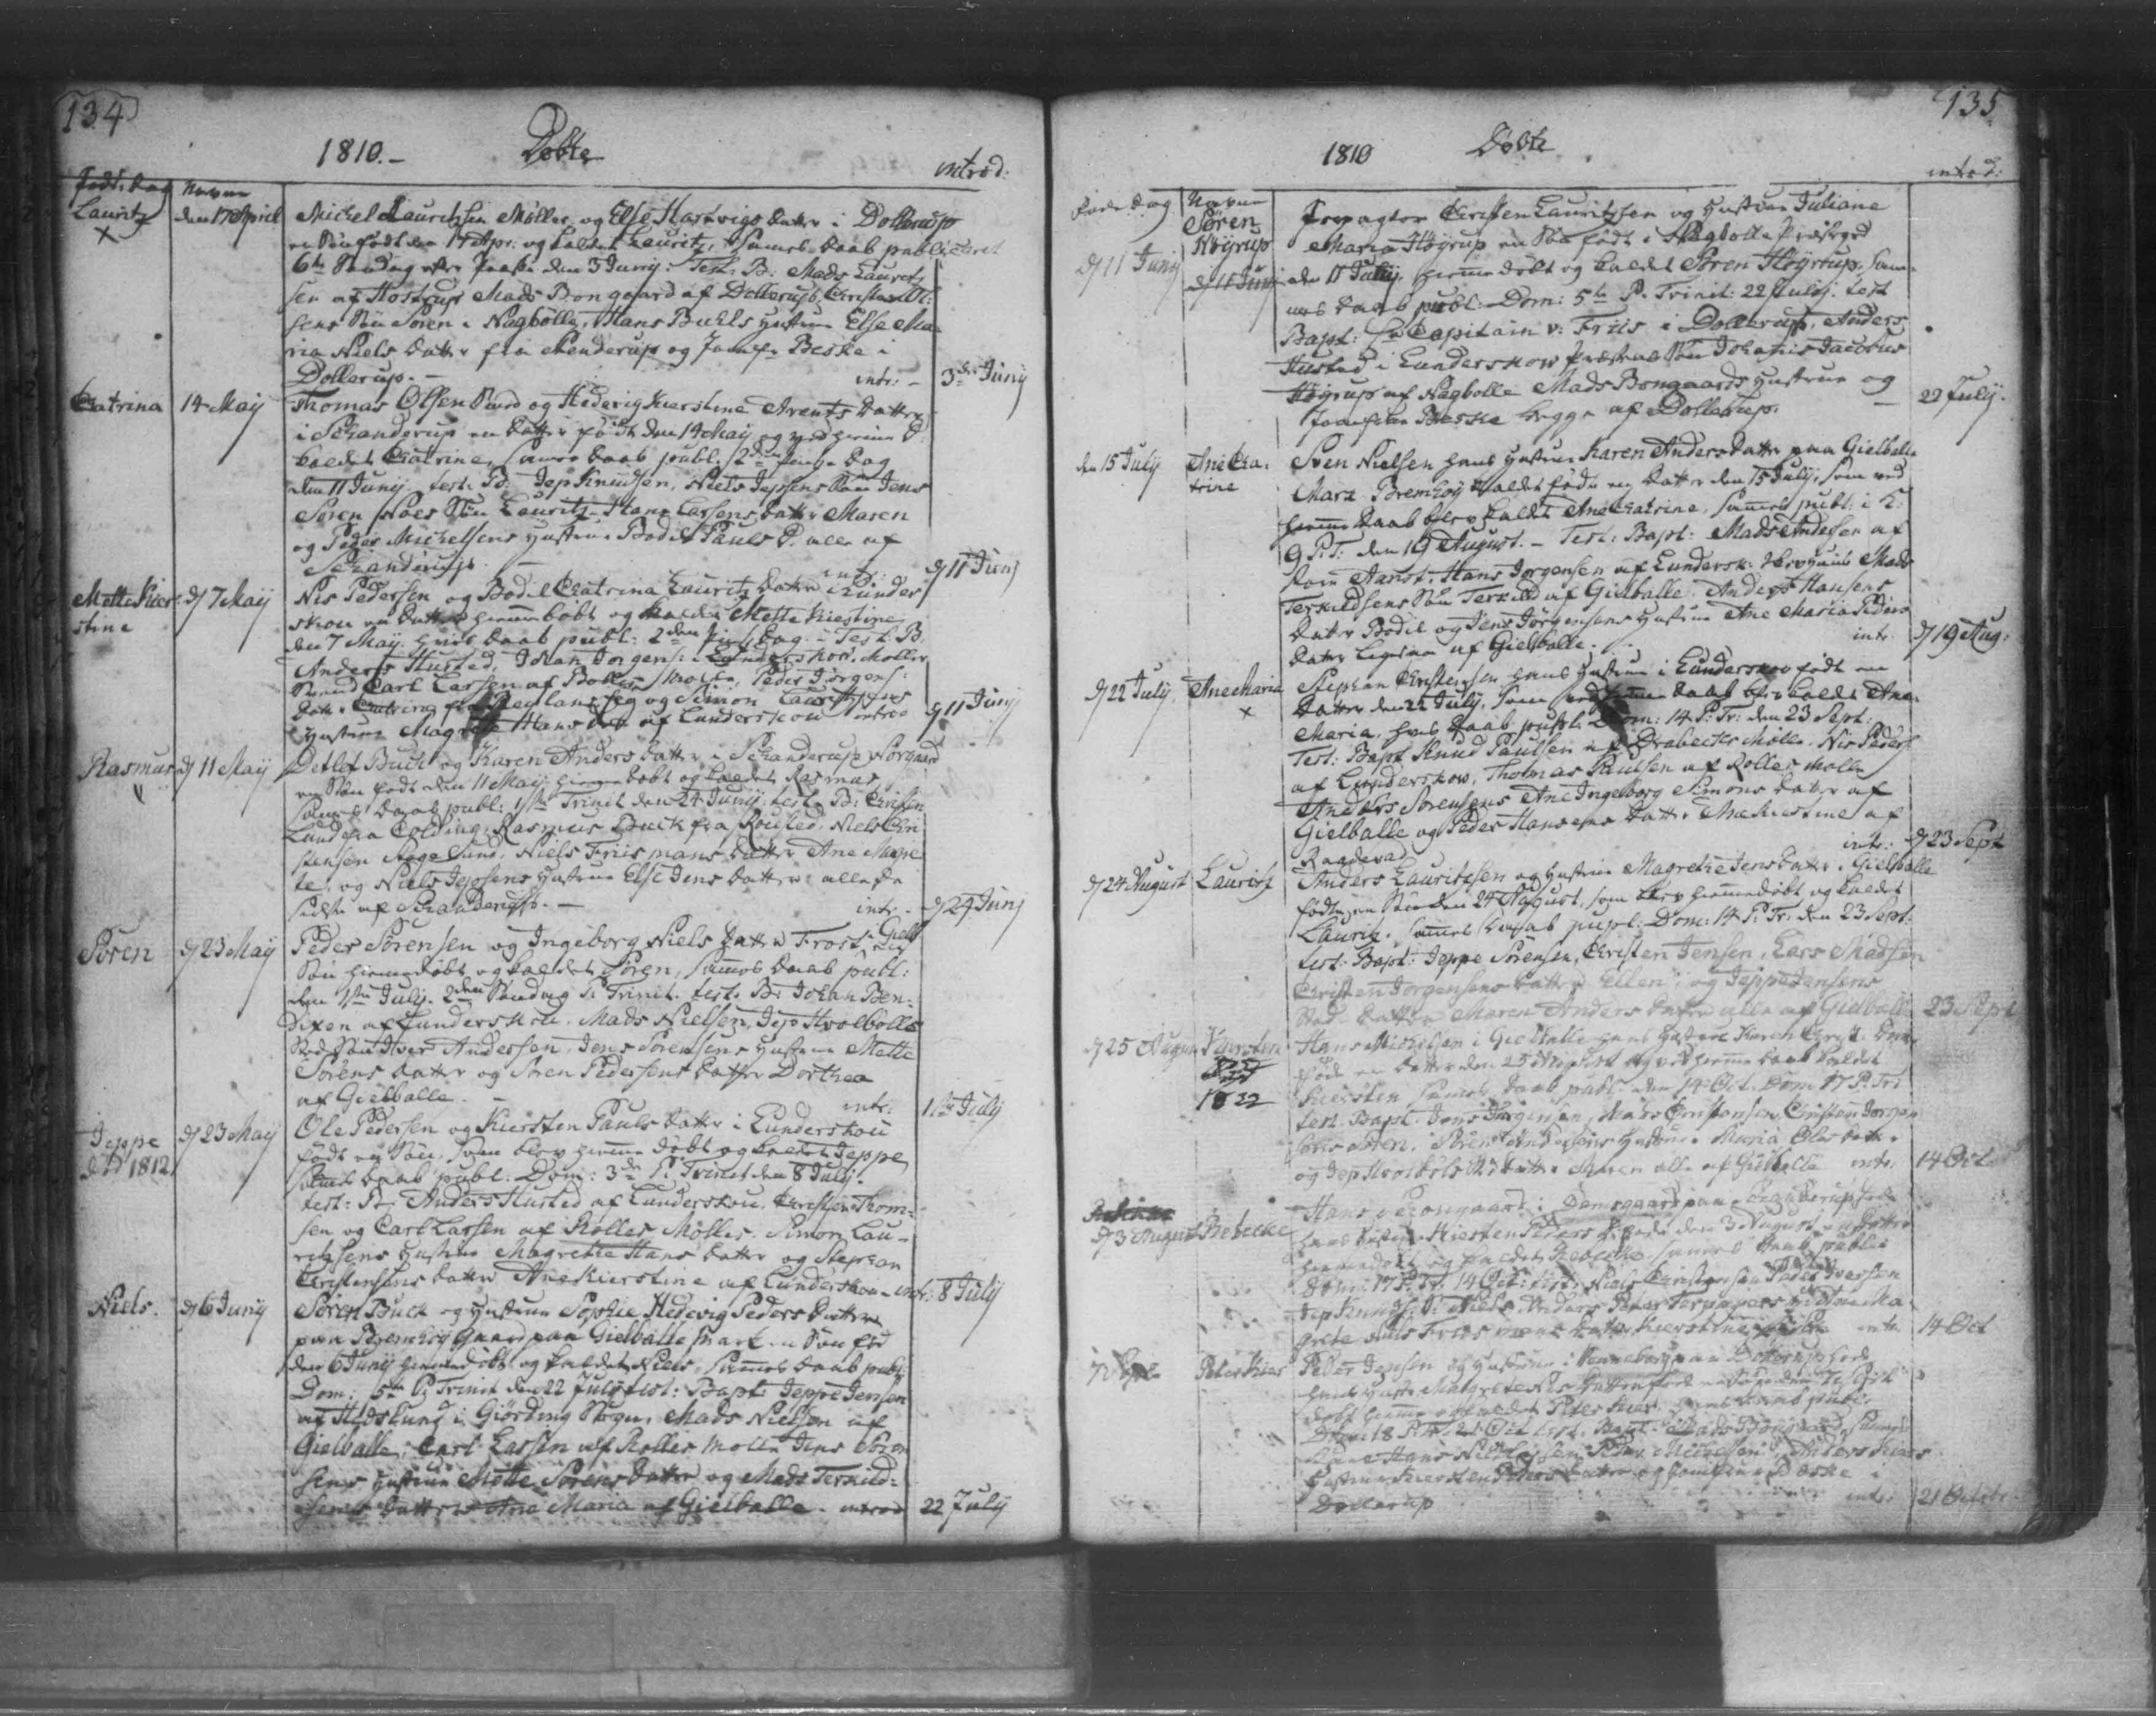 134
1810.- Døbte
introd:
Føds. Dag Navne
Lauritz den 17 April Michel Lauritzsen Møller og Else Hartvigs Datter i Dollerup
x en Søn født den 17 Apr: og kaldet Lauritz, Sames Daab publiceret
6te Søndag efter Paaske den 3 Junij: Test: B: Mads Lauritz
sen af Hostrup Mads Bongaard af Dollerup, Christen
sens Søn Søren i Nagbølle, Hans Buhls Hustrue Else Ma
ria Niels Datter fra Stenderup og Jomfr Beske i
Dollerup. - intr: - 3die Junij
Catrina 14 Maij Thomas Olsen Smed og Hedevig Kierstine Arents Datter
i Schanderup en Datter født den 14 Maij og ved hieme D
kaldet Catrine, Sames Daab publ. 2den Pinse Dag
den 11 Junij. test. B: Jep Knudsen, Niels Jepsens Søn Jens
Søren Søn Lauritz Hans Larsens Datter Maren
og Peder Michelsens Hustrue Bodil Pauls D. alle af
Schanderup. - intr: d 11 Junj
Mette Kier- d 7 Maij Nis Pedersen og Bodil Catrina Lauritz Datter i Lunder
stine skou en Datter hiemedøbt og kaldet Mette Kiestine
den 7 Maij. hvis Daab publ: 2den Pinse Dag. - Test: B.
Anders Husted, Johan Jorgens: i Lunderskow. Møller
Svend Carl Larsen af Rolles Mølle, Peder Jorgens:
Datter Catrine fra og Simon Lauritzsens
Hustrue Magrete Hans D af Lunderskou introd d 11 Junij
Rasmus d 11 Maij Detlof Buch og Karen Anders Datter i Schanderup Nørgaard
en Søn født den 11 Maij hiemedøbt og kaldet Rasmus
Sames Daab publ: 1ste Trinit den 24 Junij: test. B: Christen
Lund fra Colding, Rasmus Buck fra Rousted, Niels Chri
stensen Aagesund, Niels Friismans Datter Ane Magre
te, og Niels Jepsens Hustrue Else Jens Datter alle de
sidste af Schanderup. - intr. - d 24 Junj
Søren d 23 Maij Peder Sørensen og Ingeborg Niels Datter Frost, i Giel
Søn hiemedøbt og kaldet Søren, Sames Daab publ:
den 1ste Julij. 2den Søndag P. Trinit. test. B: Johan Ben-
dixen af Lunderskou. Mads Nielsen, Jep Hvolbølls
Sted Søn Iver Andersen, Jens Sørensens Hustrue Mette
Sørens Datter og Søren Pedersens Datter Dorthea
af Gielballe. - intr: 1ste Julij
Jeppe d 23 Maij Ole Pedersen og Kiersten Pauls Datter i Lunderskou
død 1812 født en Søn, som blev hieme døbt og kaldet Jeppe
Sames Daab publ. Dom: 3die P. Trinit den 8 Julij.
test: B. Anders Husted af Lunderskou. Christen Thom-
sen og Carl Larsen af Rolles Mølle. Simon Lau-
ritzsens Hustrue Magrethe Hans Datter og Stephan
Christensens Datter Ane Kierstine af Lunderskou - intr: 8 Julij
Niels. d 6 Junij Søren Buch og Hustrue Sophie Hedevig Peders Datter
paa Bremhøy Gaard paa Gielballe Mark en Søn fød
den 6 Junij hiemedøbt og kaldet Niels, Sames Daab publ:
Dom: 5te P. Trinit den 22 Julij test: Bapt: Jeppe Jensen
af Hiøslund i Giørding Sogn. Mads Nielsen af
Gielballe, Carl Larsen af Rolles Mølle Jens Søren
sens Hustrue Mette Sørens Datter og Mads Terkild-
sens Datter Ane Maria af Gielballe. introd 22 Julij
135
1810 Døbte
introd:
Føds Dag Navne
Søren Forpagter Christen Lauritzsen og Hustrue Juliane
Høyrup Maria Høyrup en Søn født i Nagbølle Præstegd
d 11 Junij den 11 Julij, hiemedøbt og kaldet Søren Høyrup, Sam-
mes Daab publ: Dom: 5te P. Trinit: 22 Julij. test
Bapt: Hr Capitain v: Friis i Dollerup. Anders
Husted i Lunderskow Præstens Søn Johanis Jacobus
Høyrup af Nagbølle Mads Bongaards Hustrue og
Jomfrue Beske begge af Dollerup. - 22 Julij.
den 15 Julij Ane Ca- Sven Nielsen hans Hustrue Karen Anders Datter paa Gielballe
trine Mark Bremhøy kaldet fødte en Datter den 15 Julij, som ved
hieme Daab blev kaldet Ane Catrine, Sammes publ: i K:
9 P.T: den 19 August. - Test: Bapt: Mads Andersen af
Hans Jorgensen af Lundersk: Mads
Terkildsens Søn Terkild af Gielballe. Anders Hansens
Datter Bodil og Jens Jørgensens Hustrue Ane Maria Peders
Datter Ligesaa af Gielballe. - intr. d 19 Aug:
d 22 Julij Ane Maria Stephan Christensen hans Hustrue i Lunderskov født en
x Datter den 22 Julij. som ved hieme Daab blev kaldet Ane
Maria. hvis Daab publ: Dom: 14 P: Tr: den 23 Sept:
Test: Bapt: Knud Paulsen af Drabecks Mølle. Nis Peders
af Lunderskow, Thomas Paulsen af Rolles Mølle
Anders Sørensens Ane Ingeborg Simons Datter af
Gielballe og Peder Hansens Datter Ane Kierstine af
Raadvad intr: d 23 Sept
d 24 August Lauritz Anders Lauritzsen og Hustrue Magrethe Jens Datter i Gielballe
fødte en Søn den 24 August, som blev hiemedøbt og kaldet
Lauritz. Sammes Daab publ: Dom: 14 P. Tr. den 23 Sept.
test: Bapt: Jeppe Sørensen, Christen Jensen, Lars Madsen
Christen Jorgensens Datter Ellen, og Jeppe Jensens
Sted Datter Maren Anders Datter alle af Gielballe 23 Sept
d 25 August Kiersten Hans Michelsen i Gielballe hans Hustrue Karen Christ: Datter
død fødte en Datter den 25 August og ved hieme Daab kaldet
1822 Kiersten Sames Daab publ: den 14 Oct. Dom 17 P. Tri
test. Bapt. Jens Jørgensen, Mads Christensen, Christen Jorgen
sens Søren, Sørens Hustrue Maria Oles Datter
og Jep Hvolbøls Datter Maren alle af Gielballe intr. 14 Oct
d 3 August Rebecke Hans Bongaard i Damsgaard paa
hans Hustrue Kiersten Peders D. fødte den 3 August en Datter
hiemedøbt og kaldet Rebecke. Sammes Daab public
Dom: 17 P: Tr. 14 Oct: test: Niels Christensen Iversen
Jep Knuds: Niels Anders Ma
grete Niels Friis mans Datter Kierstine intr. 14 Oct
Peter Kier Peder Jepsen og Hustrue i Dollerup
hans Hustr: Magrete Nis Datter
døbt hieme og kaldet Peter Kier Daab publ:
Dom: 18 P. Tr. 21 Oct test. Bapt: Mads Bongaard,
Hans Anders
Hustrue Kiersten Peders Datter og Jomfrue Beske i
Dollerup intr. 21 Octobr